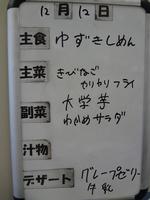 12月12日
主食 ゆずきしめん
主菜 きびなご
かりかりフライ
副菜 大学芋
わかめサラダ
汁物
デザート グレープゼリー
牛乳